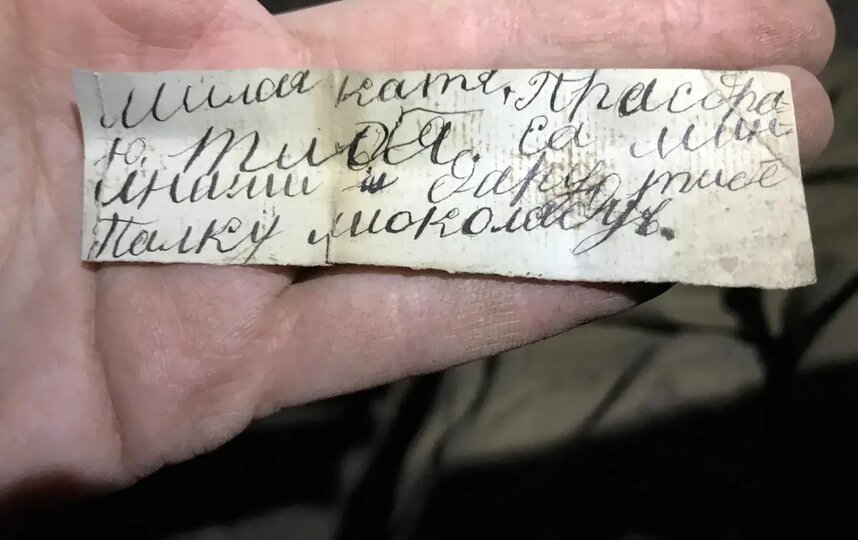 Милая катя, Прасдра-
ю. тибя. са мин-
инами и дарю тибе
Палку шоколаду.